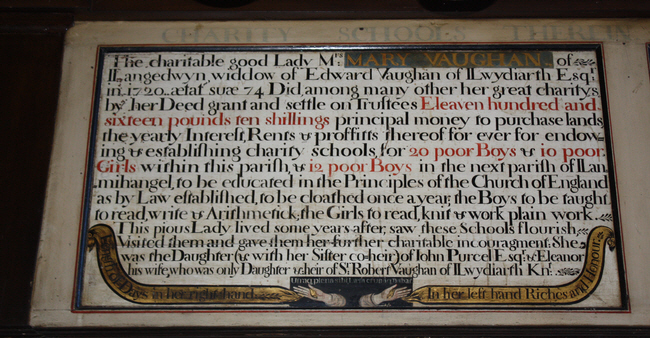 CHARITY SCHOOLS THEREIN
The charitable good Lady Mrs MARY VAUGHAN of
Llangedwyn, widdow of Edward Vaughan of Llwydiarth Esqr
in 1720. ætat suæ 74 Did, among many other her great charitys
by her Deed grant and settle on Trustees Eleaven hundred and
sixteen pounds ten shillings principal money to purchase lands
the yearly Interest, Rents & proffitts thereof for ever for endow
ing & establishing charity schools for 20 poor Boys & 10 poor
Girls within this parish, & 12 poor Boys in the next parish of Llan
mihangel, to be educated in the Principles of the Church of England
as by Law established, to be cloathed once a year, the Boys to be taught
to read, write & Arithmetick, the Girls to read, knit & work plain work.
This pious Lady lived some years after, saw these Schools flourish,
Visited them and gave them her further charitable incouragment. She
was the Daughter (& with her Sister co-heir) of John Purcel Esqr & Eleanor
his wife, who was only Daughter & heir of Sr. Robert Vaughan of Llwydiarth Knt.
Length of Days in her right hand
In her left hand Riches and Honours